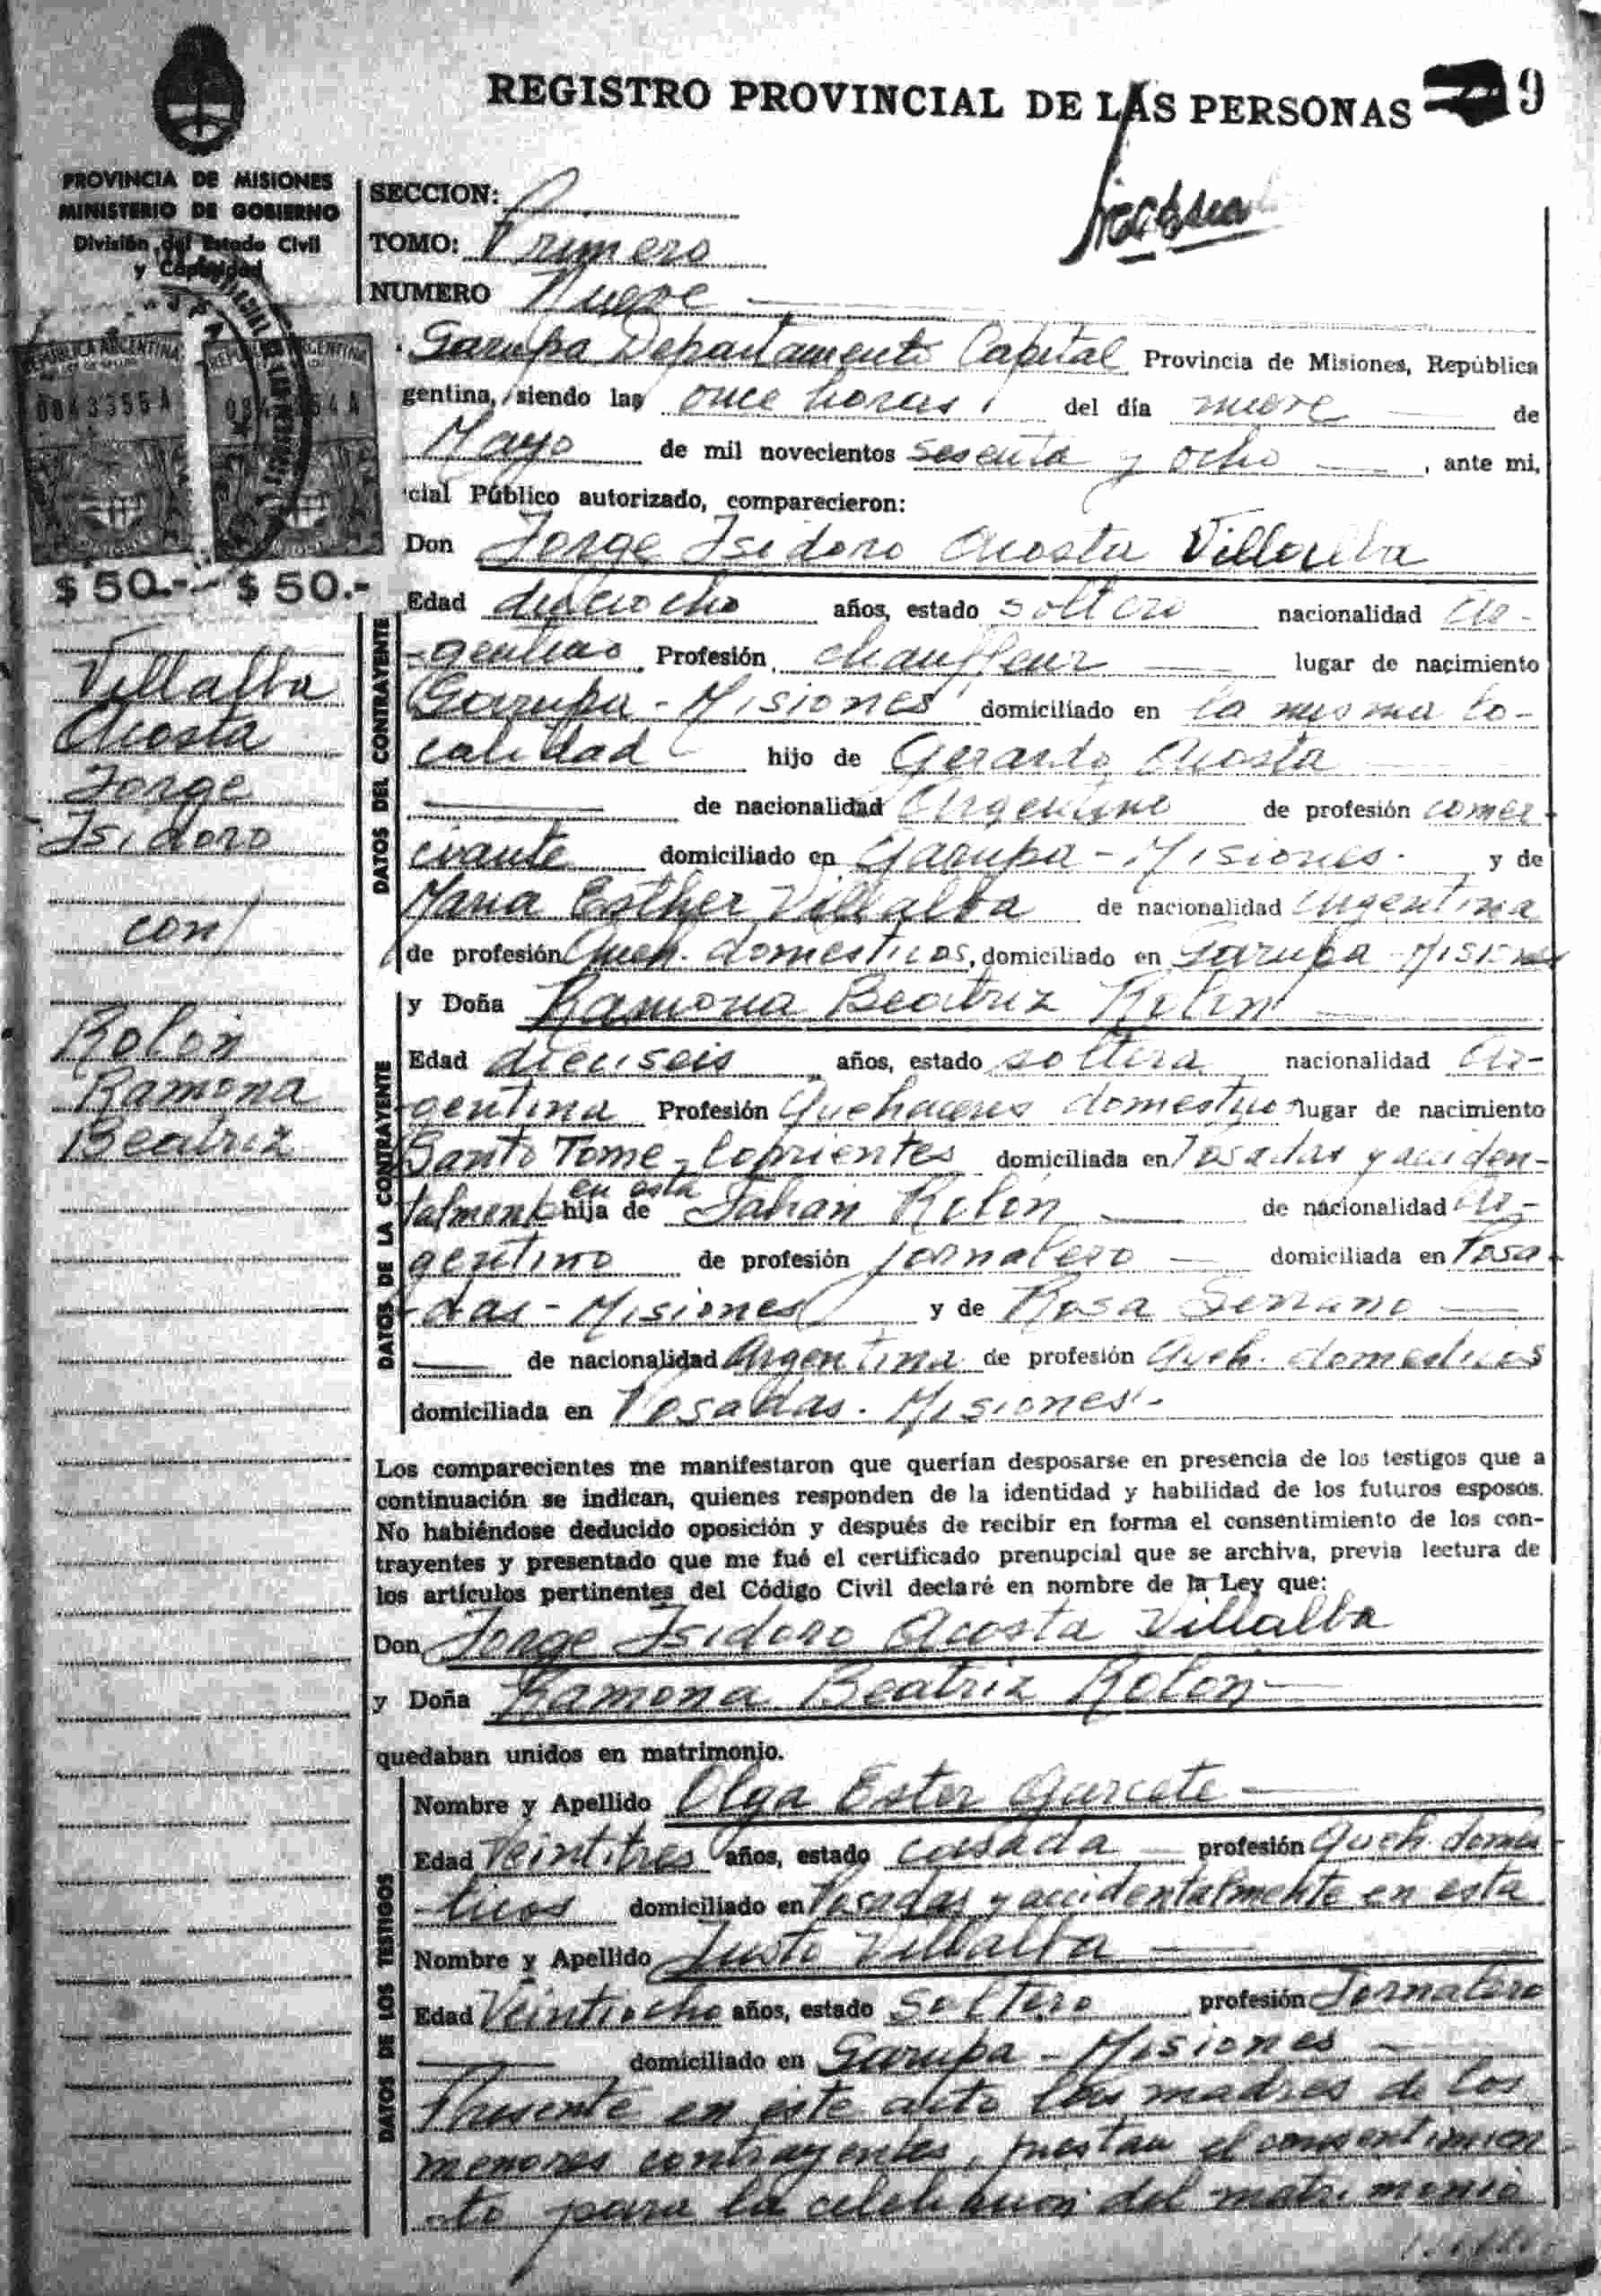 REGISTRO PROVINCIAL DE LAS PERSONAS 9
PROVINCIA DE MISIONES
MINISTERIO DE GOBIERNO
División del Estado Civil
y Capacidad
SECCION:
TOMO: Primero
NUMERO Nueve
REPUBLICA ARGENTINA
$ 50.- $ 50.-
Garupa Departamento Capital Provincia de Misiones, República
gentina, siendo las once horas del día nueve de
Mayo de mil novecientos sesenta y ocho, ante mi,
cial Público autorizado, comparecieron:
Don Jorge Isidoro Acosta Villalba
Villalba
Acosta
Jorge
Isidoro
con
Rolon
Ramona
Beatriz
DATOS DEL CONTRAYENTE
Edad dieciocho años, estado soltero nacionalidad Ar-
-gentino Profesión chauffeur lugar de nacimiento
Garupa - Misiones domiciliado en la misma lo-
calidad hijo de Gerardo Acosta
de nacionalidad Argentino de profesión comer-
ciante domiciliado en Garupa - Misiones. y de
Maria Esther Villalba de nacionalidad Argentina
de profesión Queh. domesticos, domiciliado en Garupa - Misiones
DATOS DE LA CONTRAYENTE
y Doña Ramona Beatriz Rolon
Edad dieciseis años, estado soltera nacionalidad Ar-
gentina Profesión Quehaceres domesticos lugar de nacimiento
Santo Tome - Corrientes domiciliada en Posadas y acciden-
talmente en esta hija de Rolon de nacionalidad Ar-
gentino de profesión jornalero domiciliada en Posa-
das - Misiones y de Rosa Serrano
de nacionalidad Argentina de profesión Queh. domesticos
domiciliada en Posadas - Misiones.-
Los comparecientes me manifestaron que querían desposarse en presencia de los testigos que a
continuación se indican, quienes responden de la identidad y habilidad de los futuros esposos.
No habiéndose deducido oposición y después de recibir en forma el consentimiento de los con-
trayentes y presentado que me fué el certificado prenupcial que se archiva, previa lectura de
los artículos pertinentes del Código Civil declaré en nombre de la Ley que:
Don Jorge Isidoro Acosta Villalba
y Doña Ramona Beatriz Rolon
quedaban unidos en matrimonio.
DATOS DE LOS TESTIGOS
Nombre y Apellido Olga Ester Garcete
Edad Veintitres años, estado casada profesión Queh. domes-
-ticos domiciliado en Posadas y accidentalmente en esta
Nombre y Apellido Justo Villalba
Edad Veintiocho años, estado soltero profesión Jornalero
domiciliado en Garupa - Misiones
Presente en este acto las madres de los
menores contrayentes, prestan el consentimien-
-to para la celebracion del matrimonio